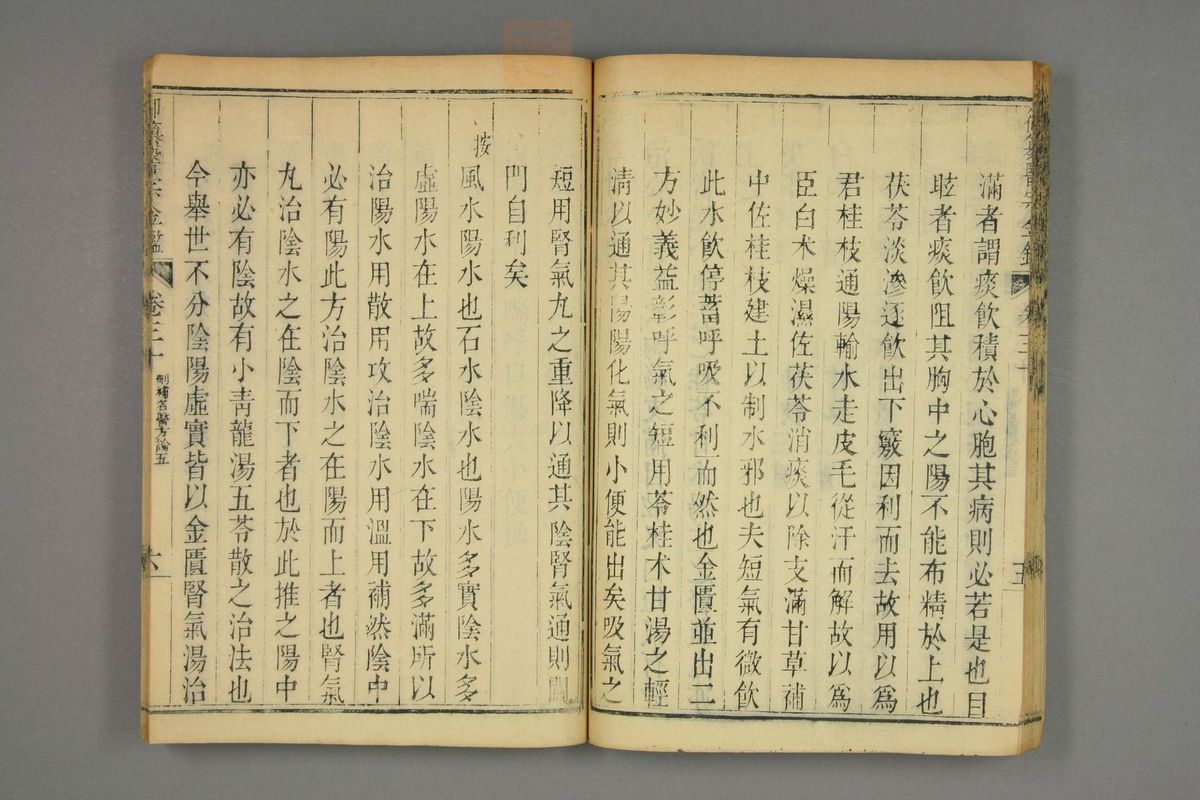 滿者謂痰飲積於心胞其病則必若是也目
眩者痰飲阻其胸中之陽不能布精於上也
茯苓淡滲逐飲出下竅因利而去故用以爲
君桂枝通陽輸水走皮毛從汗而解故以爲
臣白朮燥濕佐茯苓消痰以除支滿甘草補
中佐桂枝建土以制水邪也夫短氣有微飲
此水飲停蓄呼吸不利而然也金匱並出二
方妙義益彰呼氣之短用苓桂朮甘湯之輕
清以通其陽陽化氣則小便能出矣吸氣之
短用腎氣丸之重降以通其陰腎氣通則關
門自利矣
按
風水陽水也石水陰水也陽水多實陰水多
虛陽水在上故多喘陰水在下故多滿所以
治陽水用散用攻治陰水用溫用補然陰中
必有陽此方治陰水之在陽而上者也腎氣
丸治陰水之在陰而下者也於此推之陽中
亦必有陰故有小青龍湯五苓散之治法也
今舉世不分陰陽虛實皆以金匱腎氣湯治
御纂醫宗金鑑
卷三十
刪補名醫方論五
六